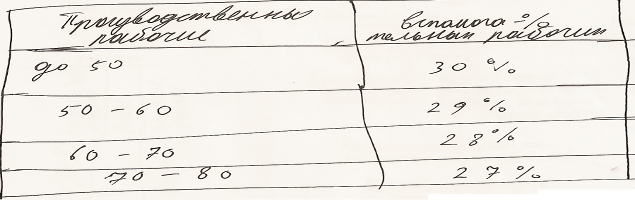 Производственные рабочие
% вспомога-
тельных рабочих
до 50 30 %
50 - 60 29 %
60 - 70 28 %
70 - 80 27 %